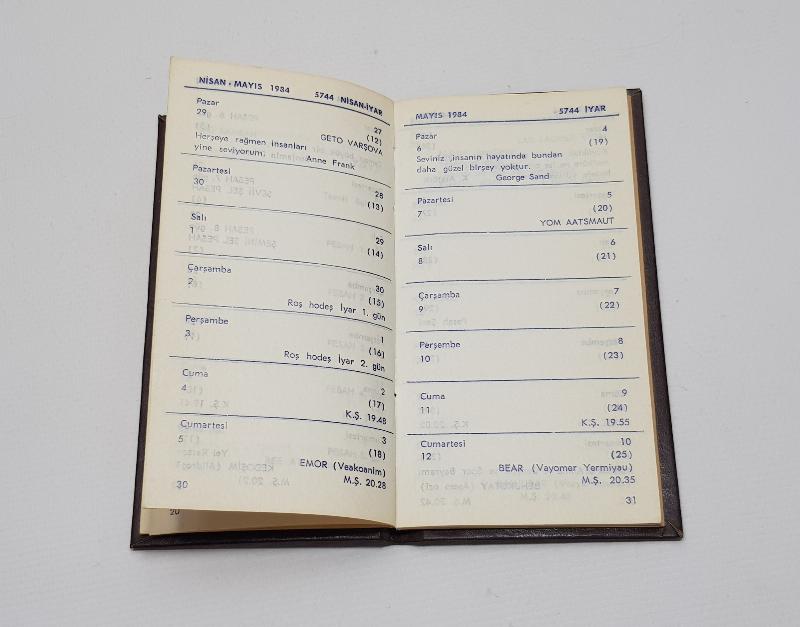 NİSAN - MAYIS 1984 5744 NİSAN-İYAR
Pazar 27
29 (12)
GETO VARŞOVA
Herşeye rağmen insanları
yine seviyorum; Anne Frank
Pazartesi 28
30 (13)
Salı 29
1 (14)
Çarşamba 30
2 (15)
Roş hodeş İyar 1. gün
Perşembe 1
3 (16)
Roş hodeş İyar 2. gün
Cuma 2
4 (17)
K.Ş. 19.48
Cumartesi 3
5 (18)
EMOR (Veakoanim)
M.Ş. 20.28
30
20
MAYIS 1984 5744 İYAR
Pazar 4
6 (19)
Seviniz ;insanın hayatında bundan
daha güzel birşey yoktur.
George Sand
Pazartesi 5
7 (20)
YOM AATSMAUT
Salı 6
8 (21)
Çarşamba 7
9 (22)
Perşembe 8
10 (23)
Cuma 9
11 (24)
K.Ş. 19.55
Cumartesi 10
12 (25)
BEAR (Vayomer Yermiyau)
M.Ş. 20.35
31